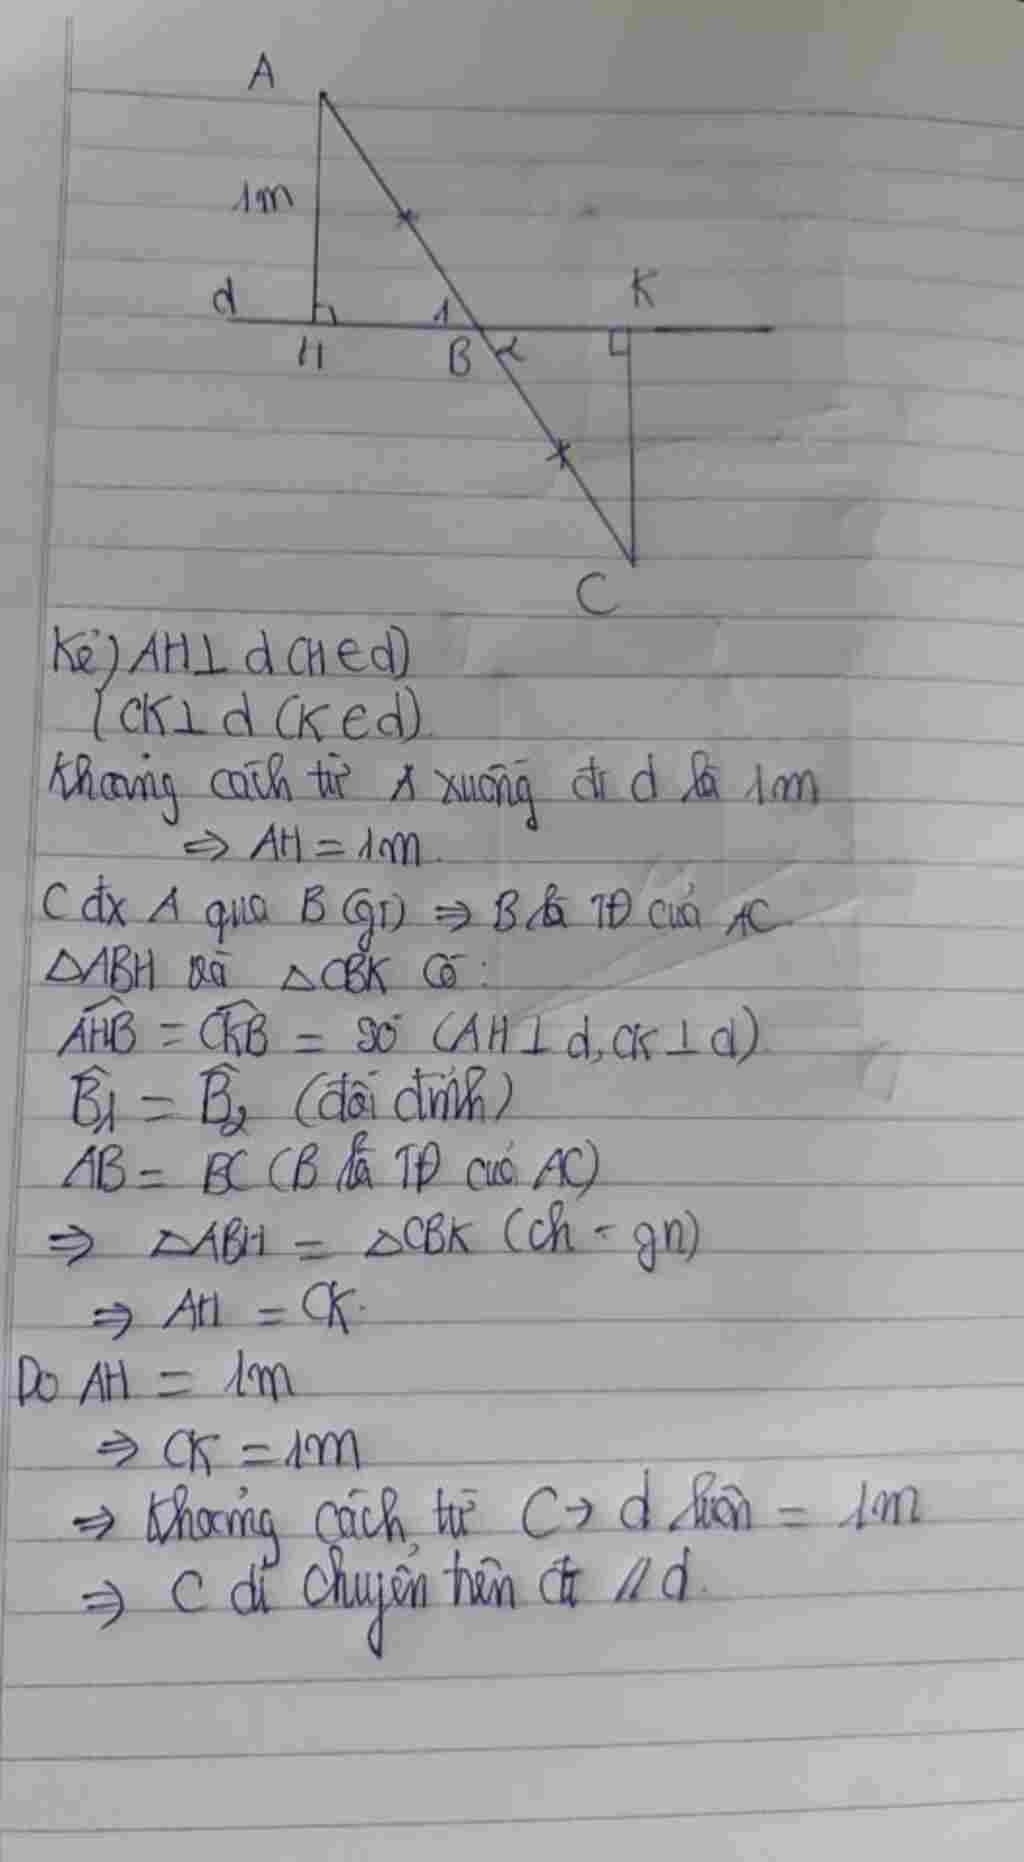 A
1m
d
K
1
H
B
2
C
Kẻ) AH⊥ d (H∈d)
(CK⊥ d (K∈d)
Khoảng cách từ A xuống đt d là 1m
⇒ AH = 1m.
C đx A qua B (gt) ⇒ B là TĐ của AC
△ABH và △CBK có:
AHB = CKB = 90° (AH⊥d, CK⊥d)
B1 = B2 (đối đỉnh)
AB = BC (B là TĐ của AC)
⇒ △ABH = △CBK (ch - gn)
⇒ AH = CK.
Do AH = 1m
⇒ CK = 1m
⇒ Khoảng cách từ C → d luôn = 1m
⇒ C di chuyển trên đt // d.